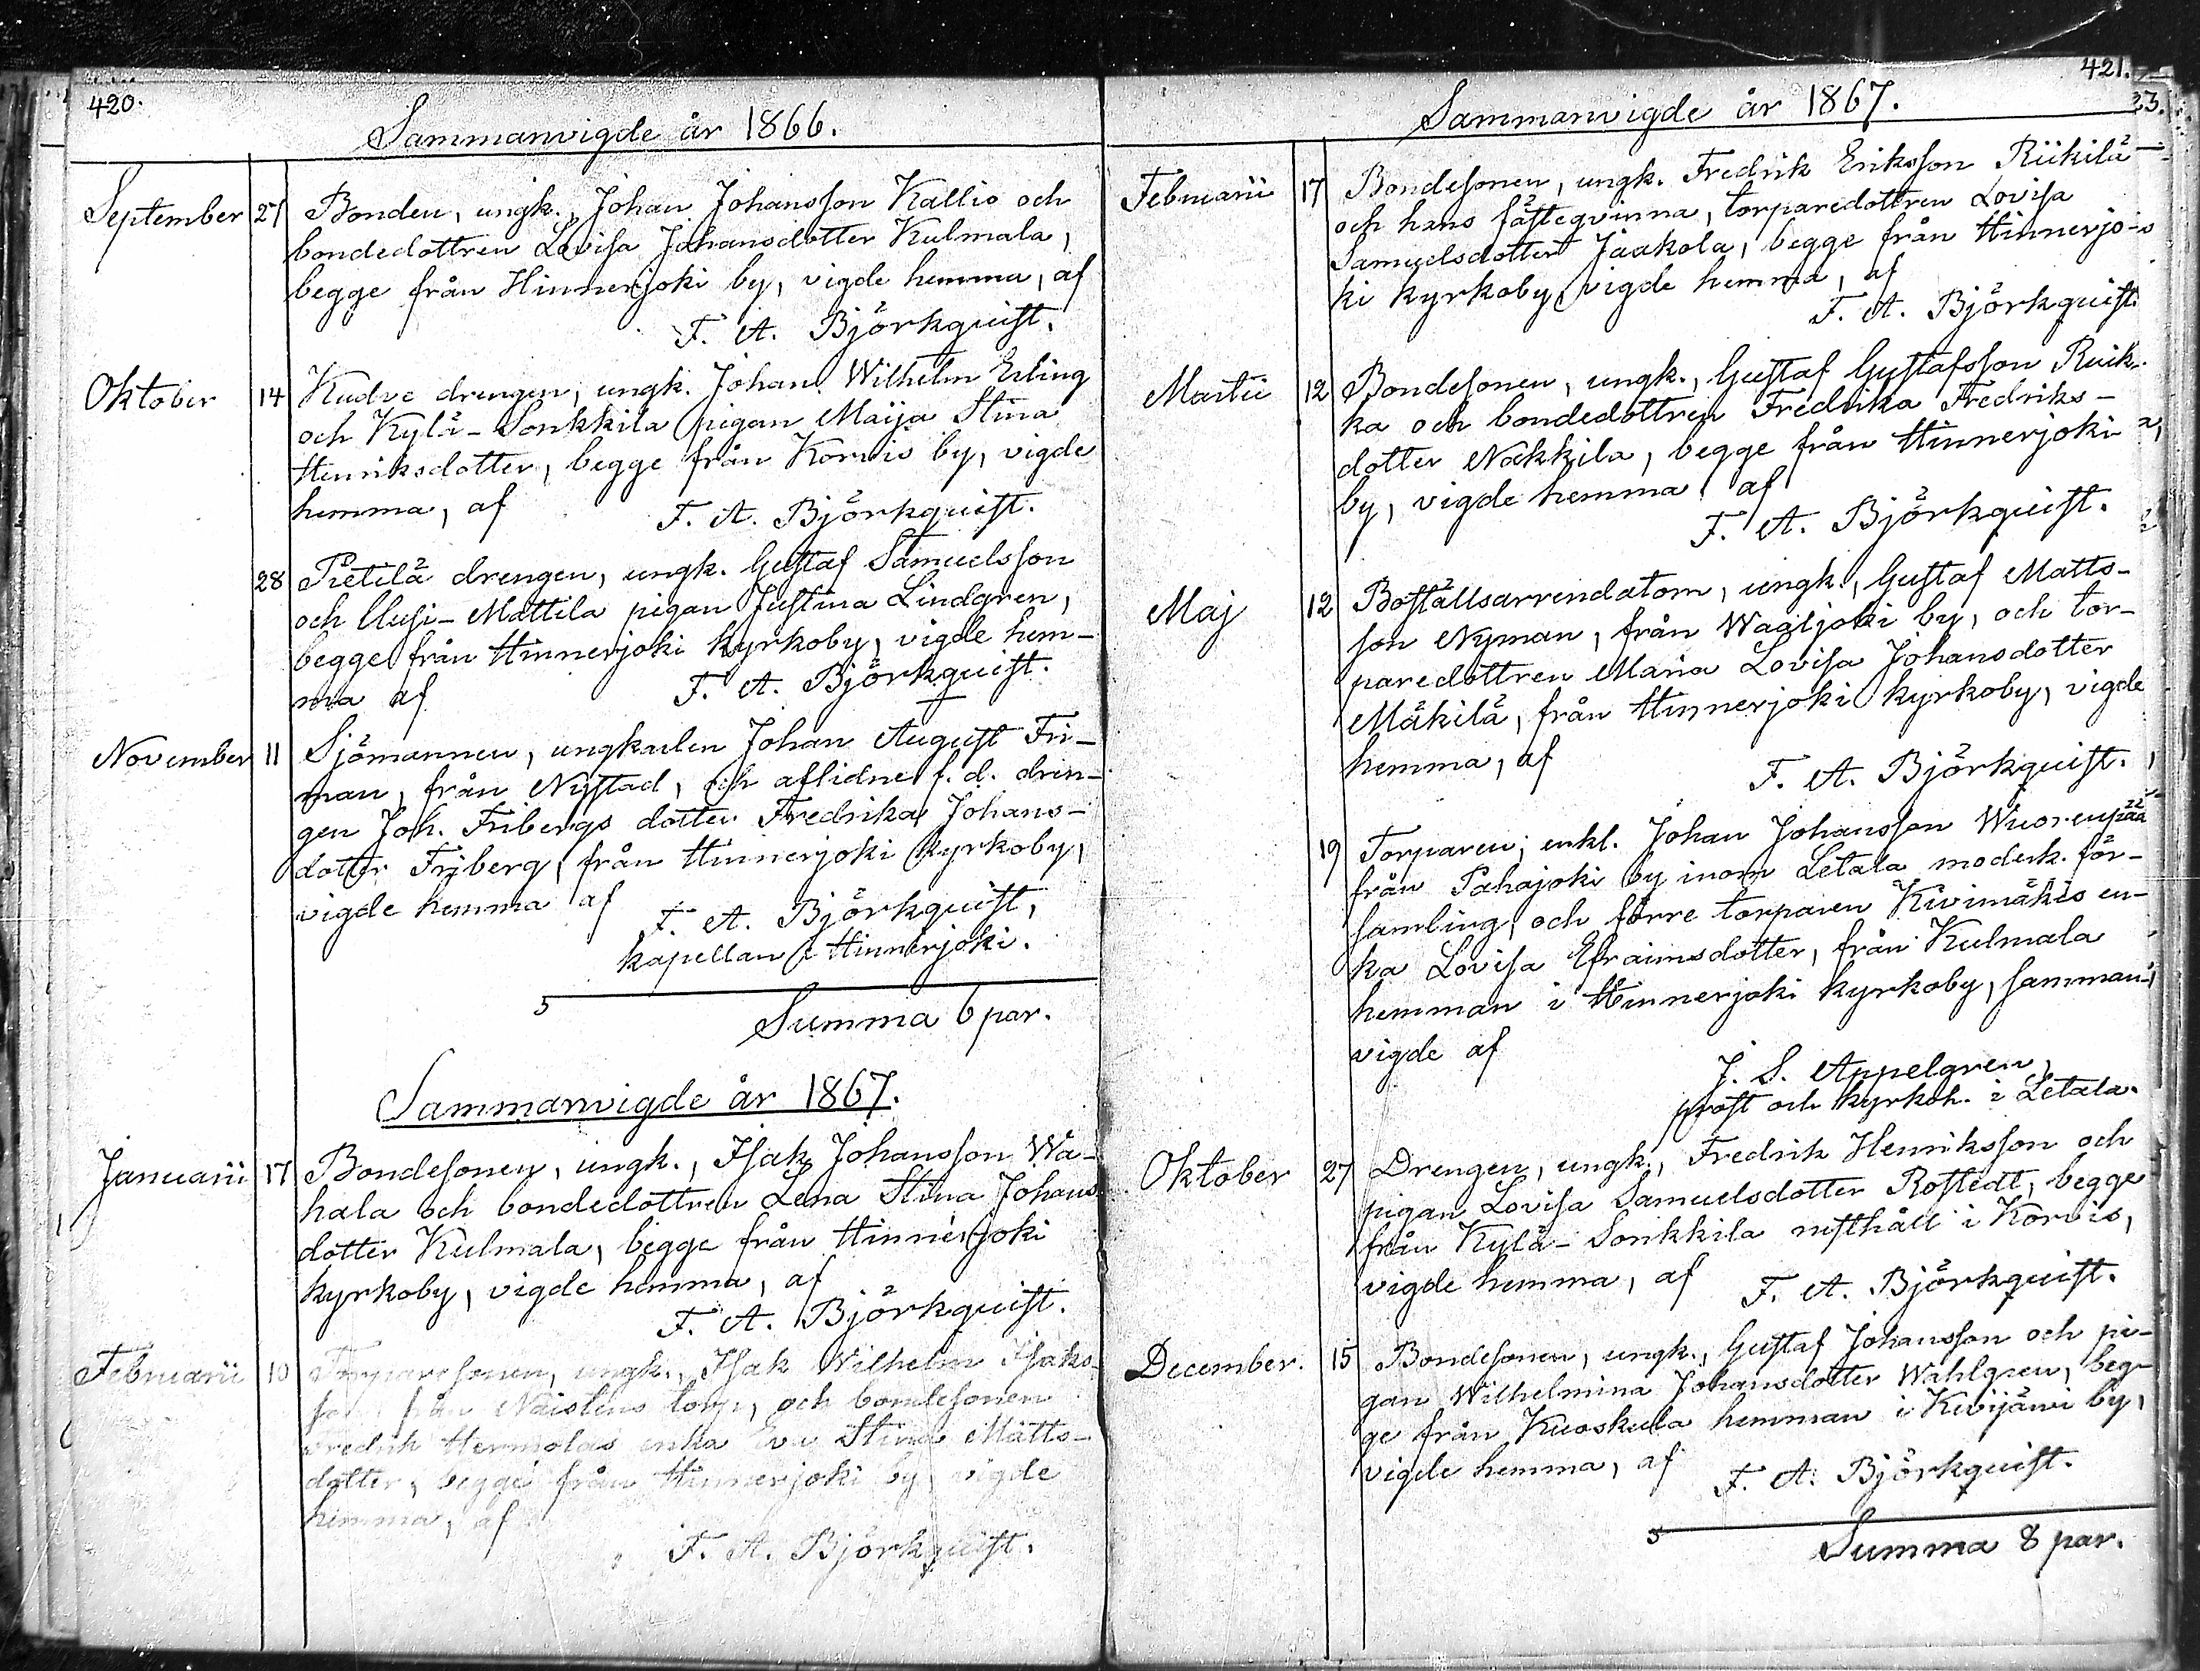 420.
Sammanvigde år 1866.
September 27 Bonden, ungk., Johan Johansson Kallio och
bondedottren Lovisa Johansdotter Kulmala,
begge från Hinnerjoki by, vigde hemma, af
F. A. Björkquist.
Oktober 14 drengen, ungk. Johan Wilhelm Erling
och Kylä-Sonkkila pigan Maija Stina
Henriksdotter, begge från Korvis by, vigde
hemma, af F. A. Björkquist.
28 Pietilä drengen, ungk. Gustaf Samuelsson
och Uusi-Mattila pigan Justina Lindgren,
begge från Hinnerjoki kyrkoby, vigde hem-
ma af F. A. Björkquist.
November 11 Sjömannen, ungkarlen Johan August Fri-
man, från Nystad, och aflidne f.d. dren-
gen Joh. Fribergs dotter Fredrika Johans-
dotter Friberg, från Hinnerjoki kyrkoby,
vigde hemma af F. A. Björkquist,
kapellan i Hinnerjoki.
5
Summa 6 par.
Sammanvigde år 1867.
Januarii 17 Bondesonen, ungk., Isak Johansson Wa-
hala och bondedottren Lena Stina Johans
dotter Kulmala, begge från Hinnerjoki
kyrkoby, vigde hemma, af
F. A. Björkquist.
Februarii 10 Torparesonen, ungk., Isak Wilhelm Isaks-
son från Naistens torp, och bondesonen
Fredrik Hermolas enka Eva Stina Matts-
dotter, begge från Hinnerjoki by, vigde
hemma, af
F. A. Björkquist.
421.
23.
Sammanvigde år 1867.
Februarii 17 Bondesonen, ungk. Fredrik Eriksson Riikilä
och hans fästeqvinna, torparedottren Lovisa
Samuelsdotter Jaakola, begge från Hinnerjo-
ki kyrkoby, vigde hemma, af
F. A. Björkquist.
Martii 12 Bondesonen, ungk., Gustaf Gustafsson Ruik-
ka och bondedottren Fredrika Fredriks-
dotter Nokkila, begge från Hinnerjoki
by, vigde hemma, af
F. A. Björkquist.
Maj 12 Boställsarrendatorn, ungk., Gustaf Matts-
son Nyman, från Wagljoki by, och tor-
paredottren Maria Lovisa Johansdotter
Mäkilä, från Hinnerjoki kyrkoby, vigde
hemma, af
F. A. Björkquist.
19 Torparen, enkl. Johan Johansson Wuorenpää
från Pahajoki by inom Letala moderk. för-
samling, och förre torparen Kivimäkis en-
ka Lovisa Efraimsdotter, från Kulmala
hemman i Hinnerjoki kyrkoby, samman-
vigde af
J. S. Appelgren,
prost och kyrkoh. i Letala.
Oktober 27 Drengen, ungk., Fredrik Henriksson och
pigan Lovisa Samuelsdotter Rostedt, begge
från Kylä-Sonkkila rusthåll i Korvis,
vigde hemma, af F. A. Björkquist.
December. 15 Bondesonen, ungk., Gustaf Johansson och pi-
gan Wilhelmina Johansdotter Wahlgren, beg-
ge från Kuoskula hemman i Kivijärvi by,
vigde hemma, af F. A. Björkquist.
5
Summa 8 par.